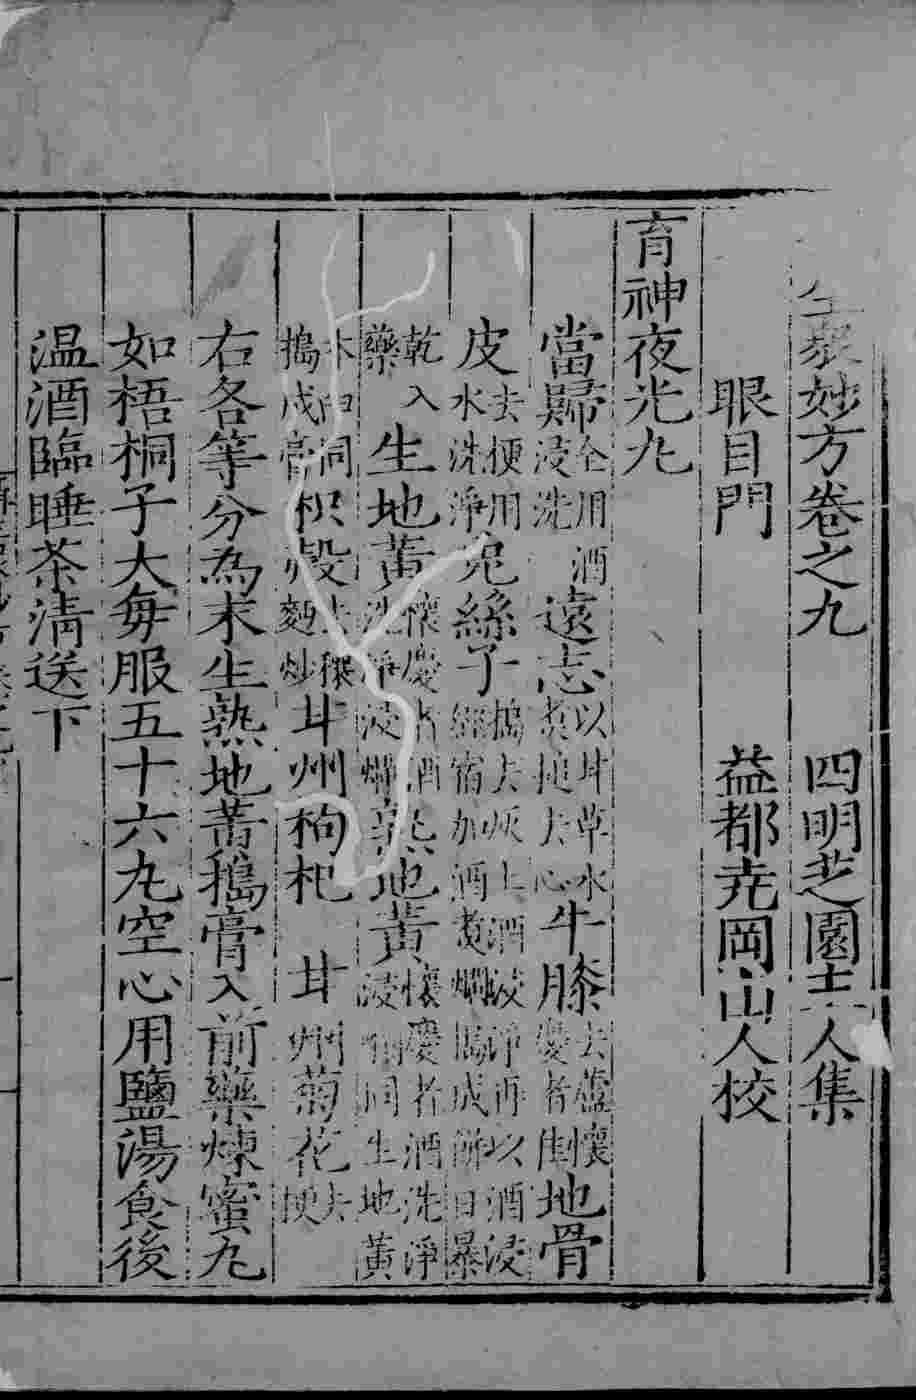 生衆妙方卷之九 四明芝園主人集
眼目門 益都尭岡山人校
育神夜光丸
當歸全用酒浸洗遠志以甘草水煮搥去心牛膝去蘆懷慶者佳地骨
皮去梗用水洗淨兔絲子搗去灰土酒浸淨再以酒浸經宿加酒煮爛搗成餅日暴
乾入藥生地黃懷慶者酒洗淨浸爛熟地黃懷慶者酒洗淨浸同生地黃
木臼同搗成膏枳殼去穰麩炒甘州枸杞 甘州菊花去梗
右各等分為末生熟地黃搗膏入前藥煉蜜丸
如梧桐子大每服五十六丸空心用鹽湯食後
温酒臨睡茶清送下